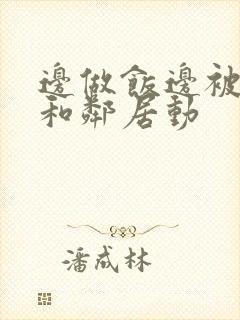 邊做飯邊被
和鄰居動
潘成林